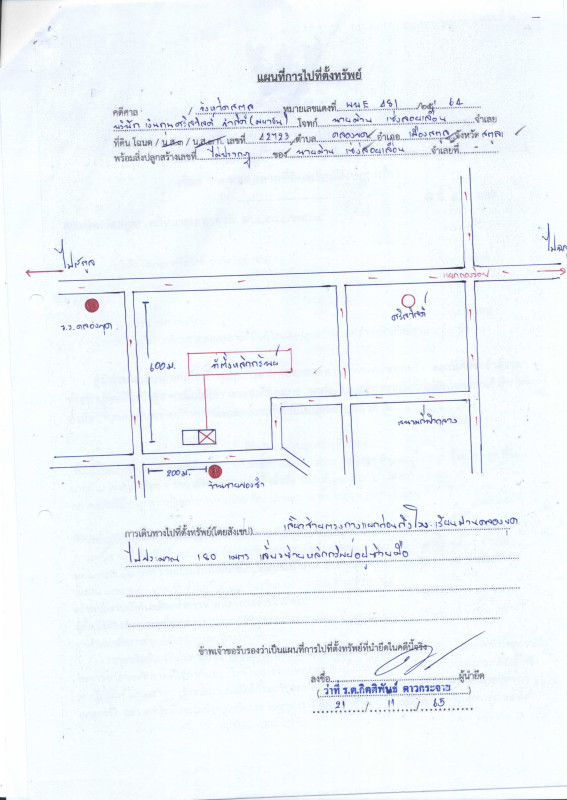 แผนที่การไปที่ตั้งทรัพย์
คดีศาล จังหวัดสตูล หมายเลขแดงที่ ผบE 481 /25 64
บริษัท เงินทุนศรีสวัสดิ์ จำกัด (มหาชน) โจทก์ จำเลย
ที่ดิน โฉนด / น.ส.3 / น.ส.3ก. เลขที่ 42723 ตำบล คลองขุด อำเภอ เมืองสตูล จังหวัด สตูล
พร้อมสิ่งปลูกสร้างเลขที่ ไม่ปรากฏ ของ จำเลยที่ -
ไปสตูล
แยกคลองขุด
ร.ร.คลองขุด
ศรีสวัสดิ์
600 ม.
ที่ตั้งหลักทรัพย์
สนามกีฬากลาง
200 ม.
ร้านขายของชำ
การเดินทางไปที่ตั้งทรัพย์(โดยสังเขป) เลี้ยวซ้ายตรงทางแยกก่อนถึงโรงเรียนบ้านคลองขุด
ไปประมาณ 180 เมตร เลี้ยวซ้ายหลักทรัพย์อยู่ซ้ายมือ
ข้าพเจ้าขอรับรองว่าเป็นแผนที่การไปที่ตั้งทรัพย์ที่นำยึดในคดีนี้จริง
ลงชื่อ ผู้นำยึด
( ว่าที่ ร.ต.กิตติพันธ์ ดาวกระจาย )
21 / 11 / 65